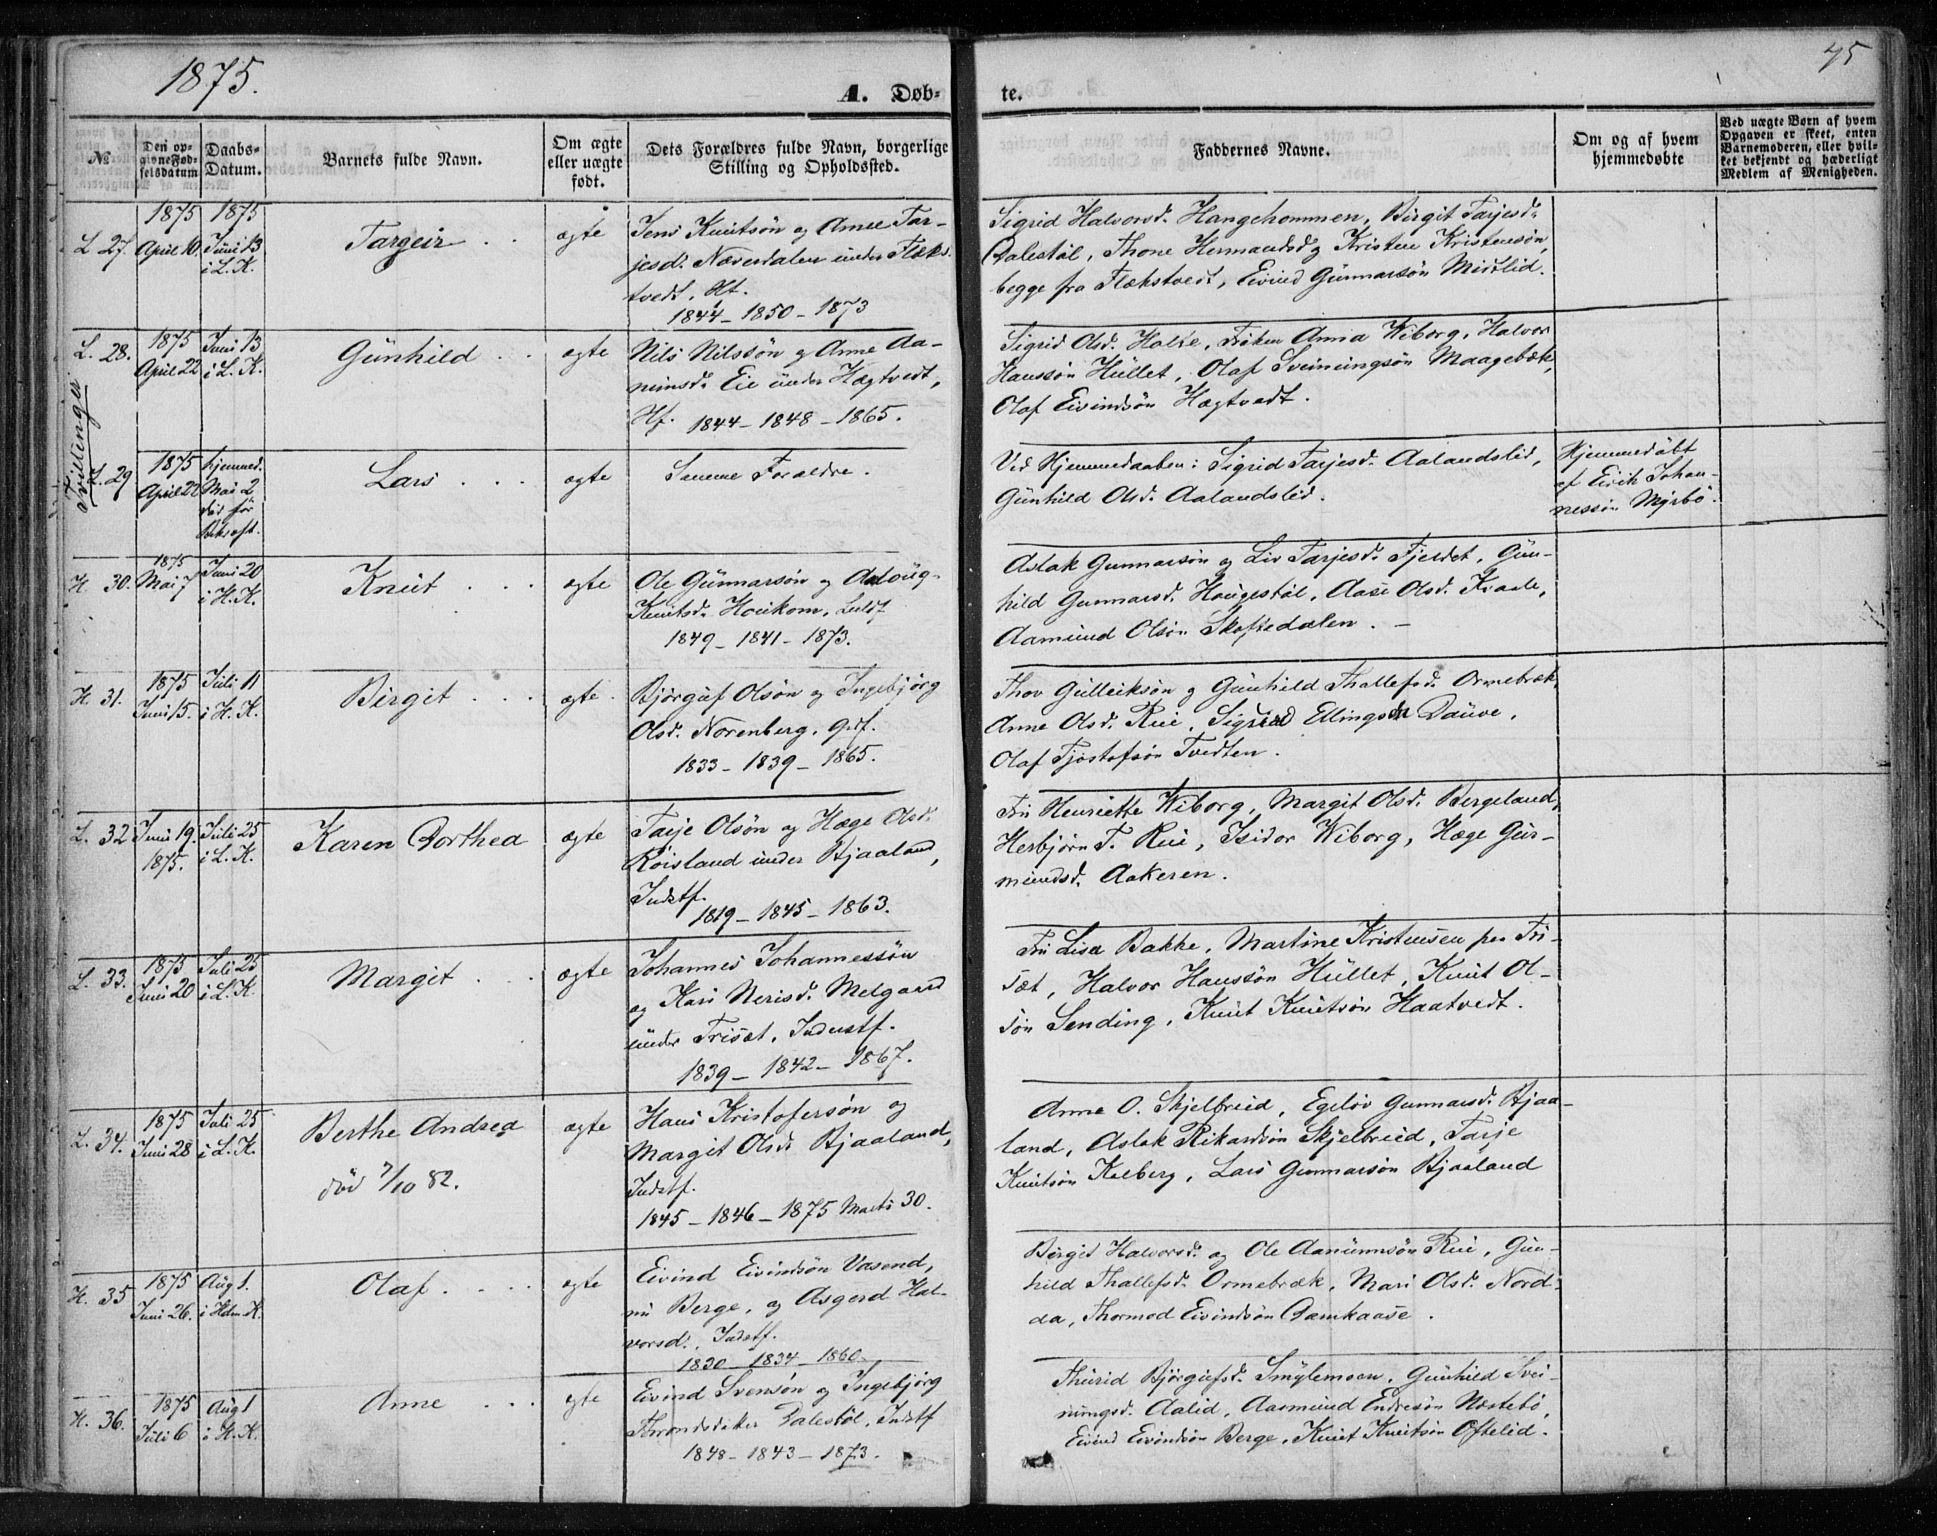 1875.
75
A. Døb-
te.
№
Den op-
givne Fød-
selsdatum
Daabs-
Datum.
Barnets fulde Navn.
Om ægte
eller uægte
født.
Dets Forældres fulde Navn, borgerlige
Stilling og Opholdssted.
Faddernes Navne.
Om og af hvem
hjemmedøbte
Ved uægte Børn af hvem
Opgaven er skeet, enten
Barnemoderen, eller hvil-
ket bekjendt og hæderligt
Medlem af Menigheden.
L. 27.
1875
April 10.
1875
Juni 13
i L. K.
Targeir
ægte
Jens Knutsön og Anne Tar-
jesd. Næverdalen under Flæks-
tvedt, Hf.
1844 - 1850 - 1873
Sigrid Halvorsd. Hangehommen, Birgit Tarjesd.
Dalestöl, Thone Hermandsd og Kristen Kristensön,
begge fra Flækstvedt, Eivind Gunnarsön Midtlid.
Tvillinger
L. 28.
1875
April 22
Juni 13
i L. K.
Günhild
ægte
Nils Nilssön og Anne Aa-
nimsd. Eie under Hægtvedt,
Hf. 1844 - 1848 - 1865.
Sigrid Olsd. Holte, Fröken Anna Wiborg, Halvor
Hanssön Hüllet, Olaf Sveinungsön Maagebæk,
Olaf Eivindsön Hægtvedt.
L. 29
1875
April 22
hjemmed.
Mai 2
död för
Beksæft.
Lars
ægte
Samme Forældre.
Ved Hjemmedaaben: Sigrid Tarjesd. Aalandslid,
Günhild Olsd. Aalandslid.
Hjemmedöbt
af Eirik Johan-
nessön Myrbö.
H. 30.
1875
Mai 7
Juni 20
i H. K.
Knut
ægte
Ole Günnarsön og Aslaug
Knutsd. Houkom, Selvf
1849 - 1841 - 1873.
Aslak Gunnarsön og Liv Tarjesd. Fjeldet, Gün-
hild Gunnarsd. Haugestöl, Aase Olsd. Kraale,
Aamund Olsön Skoftedalen. -
H. 31.
1875
Juni 15.
Juli 11
i H. K.
Birgit
ægte
Bjørguf Olsön og Ingebjörg
Olsd. Norenberg, Grf.
1833 - 1839 - 1865.
Thov Gülleiksön og Günhild Thallefsd. Ormebræk,
Anne Olsd. Rui, Sigrid Ellingsdr Dauve,
Olaf Tjostofsön Tvedten.
L. 32
Juni 19.
1875.
Juli 25
i L. K.
Karen Dorthea
ægte
Tarje Olsön og Hæge Olsd.
Röisland under Bjaaland,
Indstf.
1819 - 1845 - 1863.
Fru Henriette Wiborg, Margit Olsd. Bergeland,
Herbjörn T. Rui, Isidor Wiborg, Hæge Gur-
mundsd. Aakeren.
L. 33.
1875
Juni 20
Juli 25
i L. K.
Margit
ægte
Johannes Johannessön
og Kari Nerisd. Melgaard
under Triset, Industf.
1839 - 1842 - 1867.
Fru Lisa Bakke, Martine Kristensen paa Tri-
sæt, Halvor Hanssön Hüllet, Knut Ol-
sön Sending, Knut Knutsön Haatvedt.
L. 34.
1875
Juni 28
Juli 25
i L. K.
Berthe Andrea
död 7/10 82.
ægte
Hans Kristofersön og
Margit Olsd. Bjaaland,
Indstf.
1845 - 1846 - 1875 Marts 30.
Anne O. Skjelbreid, Egelöv Gunnarsd. Bjaa-
land, Aslak Rikardsön Skjelbreid, Tarje
Knutsön Kalberg, Lars Gunnarsön Bjaaland
H. 35
1875
Juni 26.
Aug 1.
i Hdm. K.
Olaf
ægte
Eivind Eivindsön Vasend,
nu Berge, og Asgerd Hal-
vorsd., Indstf.
1830 - 1834 - 1860.
Birgit Halvorsd. og Ole Aanünnsön Rui, Gun-
hild Thallefsd. Ormebræk, Mari Olsd. Nord-
da, Thormod Eivindsön Damkaase.
H. 36.
1875
Juli 6
Aug 1
i H. K.
Anne
ægte
Eivind Svensön og Ingebjörg
Throndsdater Dalestöl, Indstf
1848 - 1843 - 1873.
Thurid Bjørgufsd. Smylemoen, Günhild Svei-
nungsd. Aalid, Aasmund Endresön Næstebö,
Eivind Eivindsön Berge, Knut Knutsön Oftelid.